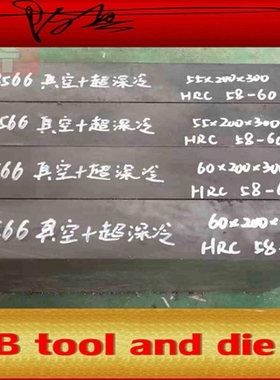 566 真空+超深冷
55×200×300
HRC 58-60
566 真空+超深冷
55×200×300
HRC 58-60
566 真空+超深冷
60×200×30
HRC 58-6
566 真空+超深冷
60×200×
HRC 58
B tool and die